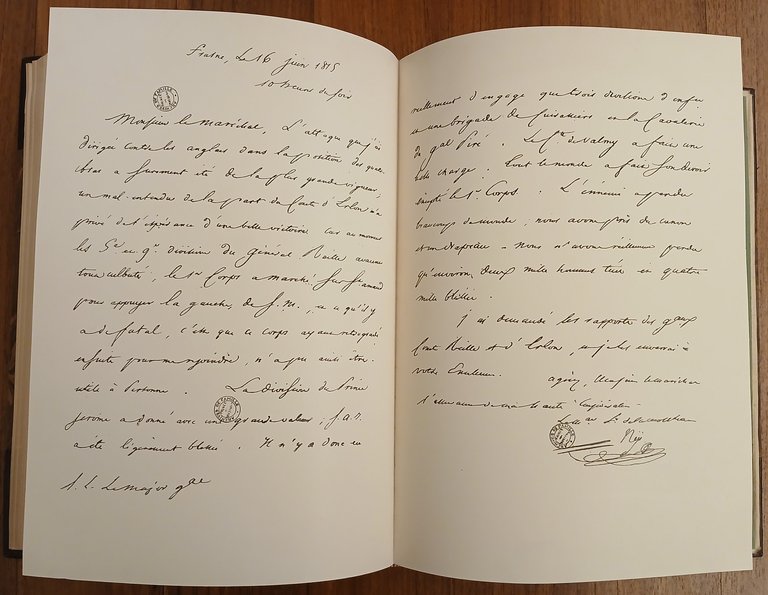 Frasne, Le 16 juin 1815
10 heures du soir
Monsieur le maréchal, L'attaque que j'ai
dirigée contre les anglais dans la position des quatre
bras a été de la plus grande vigueur,
un mal-entendu de la part du Comte d'Erlon m'a
privé de l'espérance d'une belle victoire car au moment
les 5e et 9e division du général Reille avaient
tout culbuté, le 1er Corps a marché sur St amand
pour appuyer la gauche de S.M., et ce qu'il y
a de fatal, c'est que ce corps ayant rétrogradé
ensuite pour me rejoindre, n'a pu ainsi être
utile à Personne. La division du Prince
Jerome a donné avec une grande valeur, S.A.R.
a été légèrement blessé. Il n'y a donc eu
S. E. Le Major gal
réellement d'engagé que trois divisions d'infie
et une brigade de Cuirassiers et la Cavalerie
du gal Piré. Le Cte de Valmy a fait une
belle charge. tout le monde a fait son devoir
excepté le 1er Corps. L'ennemi a perdu
beaucoup de monde, nous avons pris du canon
et un drapeau - Nous n'avons réellement perdu
qu'environ deux mille hommes tués et quatre
mille blessés.
j'ai demandé les rapports des gaux
Comte Reille et d'Erlon, et je les enverrai à
votre Excellence.
agréez, Monsieur le maréchal
l'assurance de ma haute Considération
Le mal Pce de la moskowa
Ney